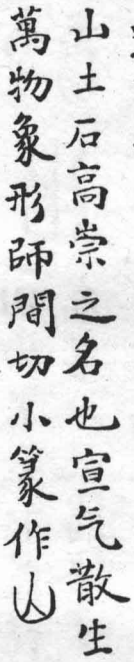 山土石高崇之名也宣气散生
萬物象形師間切小篆作山